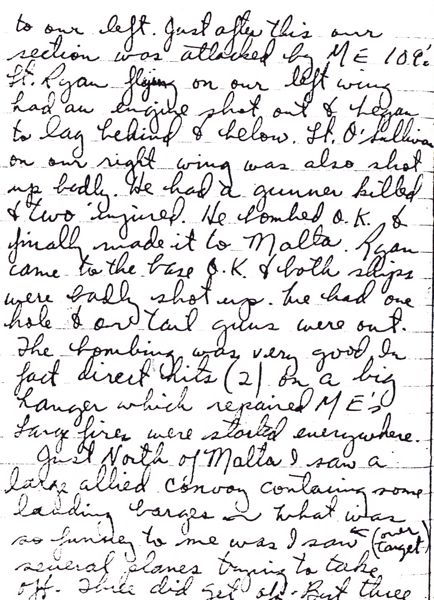 to our left. Just after this our
section was attacked by ME 109's
Lt. Ryan flying on our left wing
had an engine shot out & began
to lag behind & below. Lt. O'Sullivan
on our right wing was also shot
up badly. He had a gunner killed
& two injured. He bombed O.K. &
finally made it to Malta. Ryan
came to the base O.K. & both ships
were badly shot up. We had one
hole & our tail guns were out.
The bombing was very good In
fact direct hits (2) on a big
hanger which repaired ME's
Large fires were started everywhere.
Just North of Malta I saw a
large allied convoy containg some
ladding barges What was
so funney to me was I saw (over target)
several planes trying to take
off. Three did get off. But three